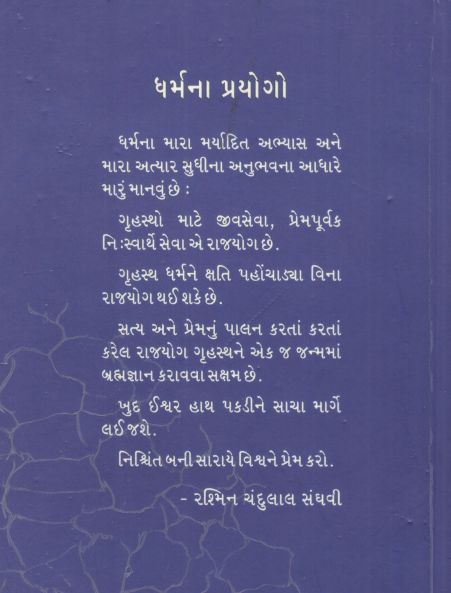 ધર્મના પ્રયોગો
ધર્મના મારા મર્યાદિત અભ્યાસ અને
મારા અત્યાર સુધીના અનુભવના આધારે
મારું માનવું છે :
ગૃહસ્થો માટે જીવસેવા, પ્રેમપૂર્વક
નિઃસ્વાર્થે સેવા એ રાજયોગ છે.
ગૃહસ્થ ધર્મને ક્ષતિ પહોંચાડ્યા વિના
રાજયોગ થઈ શકે છે.
સત્ય અને પ્રેમનું પાલન કરતાં કરતાં
કરેલ રાજયોગ ગૃહસ્થને એક જ જન્મમાં
બ્રહ્મજ્ઞાન કરાવવા સક્ષમ છે.
ખુદ ઈશ્વર હાથ પકડીને સાચા માર્ગે
લઈ જશે.
નિશ્ચિંત બની સારાયે વિશ્વને પ્રેમ કરો.
- રશ્મિન ચંદુલાલ સંઘવી